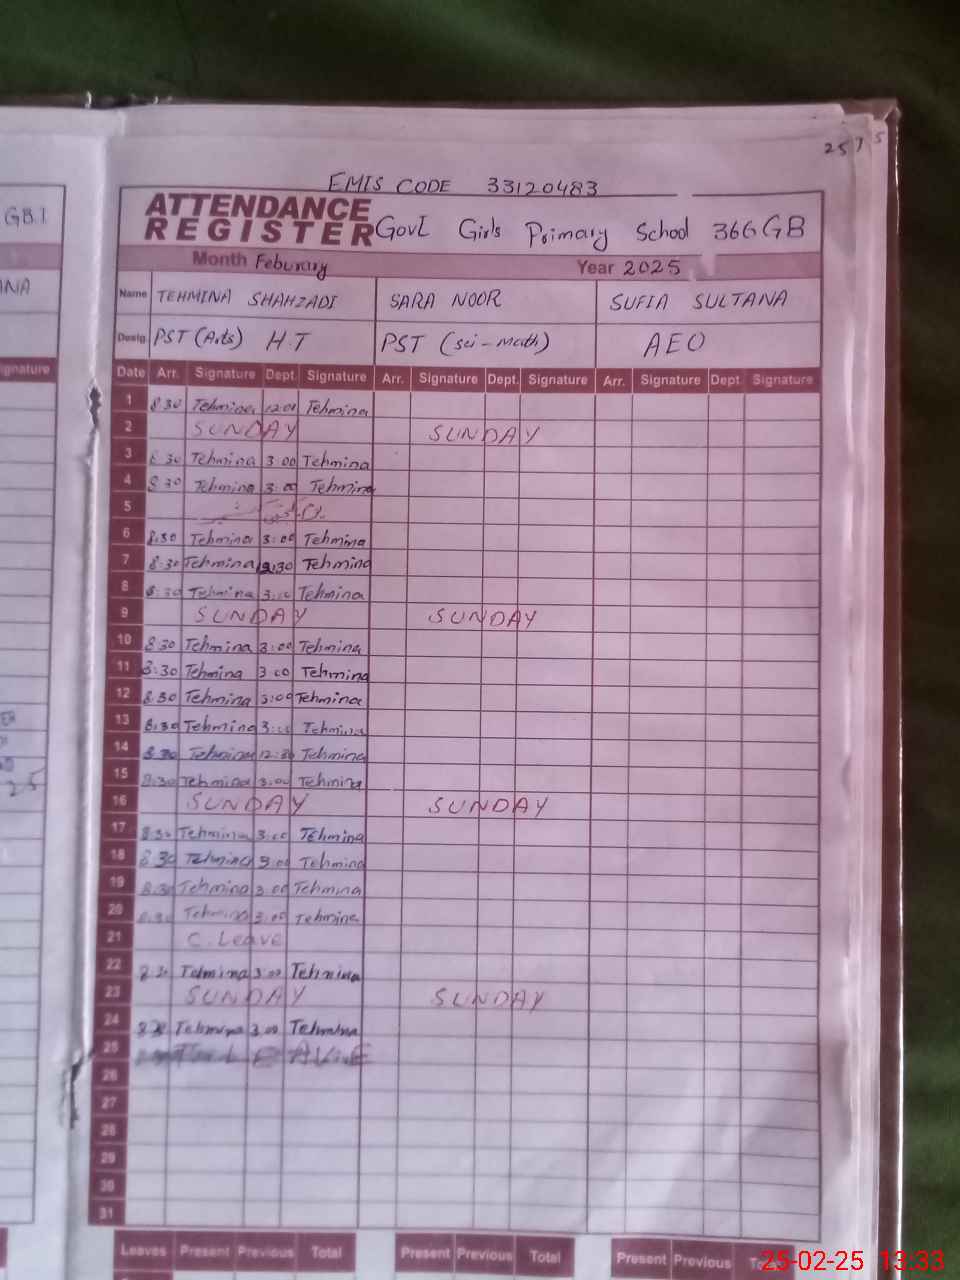 EMIS CODE 33120483
GB.1
ATTENDANCE
REGISTER Govt Girls Primary School 366GB
Month Feburary Year 2025
ANA
Name TEHMINA SHAHZADI SARA NOOR SUFIA SULTANA
Desig. PST (Arts) H.T PST (sci-math) AEO
ignature
Date Arr. Signature Dept. Signature Arr. Signature Dept. Signature Arr. Signature Dept. Signature
1 8 30 Tehmina 12:00 Tehmina
2 SUNDAY SUNDAY
3 8 30 Tehmina 3 00 Tehmina
4 8 30 Tehmina 3:00 Tehmina
5
6 8.30 Tehmina 3:00 Tehmina
7 8:30 Tehmina 12:30 Tehmina
8 8:30 Tehmina 3:00 Tehmina
9 SUNDAY SUNDAY
10 8 30 Tehmina 3:00 Tehmina
11 8:30 Tehmina 3 00 Tehmina
12 8.30 Tehmina 3:00 Tehmina
13 8.30 Tehmina 3:00 Tehmina
14 8.30 Tehmina 12:30 Tehmina
15 8:30 Tehmina 3.00 Tehmina
16 SUNDAY SUNDAY
17 8:30 Tehmina 3:00 Tehmina
18 8 30 Tehmina 3:00 Tehmina
19 8.30 Tehmina 3:00 Tehmina
20 8.30 Tehmina 3:00 Tehmina
21 C. Leave
22 8 30 Tehmina 3 00 Tehmina
23 SUNDAY SUNDAY
24 8 30 Tehmina 3.00 Tehmina
25 LEAVE
26
27
28
29
30
31
Leaves Present Previous Total Present Previous Total Present Previous
25-02-25 13:33